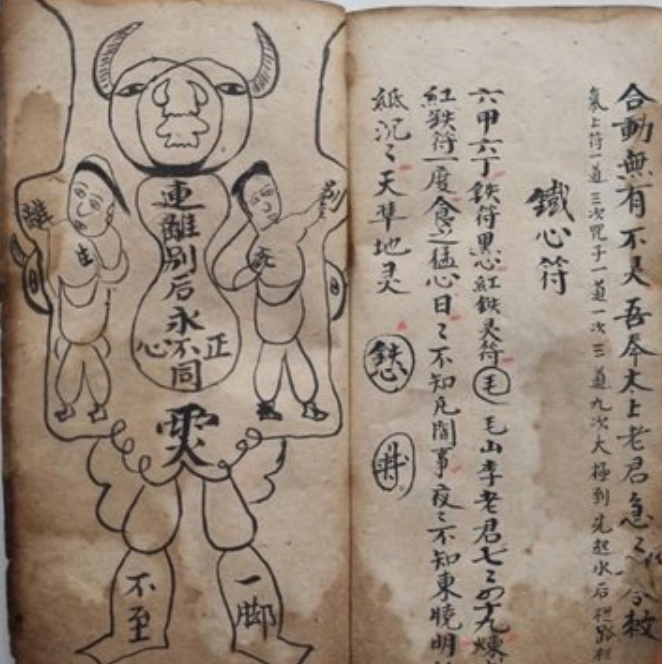 合動無有不灵吾奉太上老君急〻令敕
符一道三次咒子一道一次三道九次大極到先起水后栏路
鐵心符
六甲六丁鉄符黑心紅鉄灵符毛毛山李老君七〻四十九煉
紅鉄符一度食之猛心日〻不知凡間事夜〻不知東曉明
紙沉〻天準地灵
別
死
離別后永不同
正
心
生
離
一脚
不至